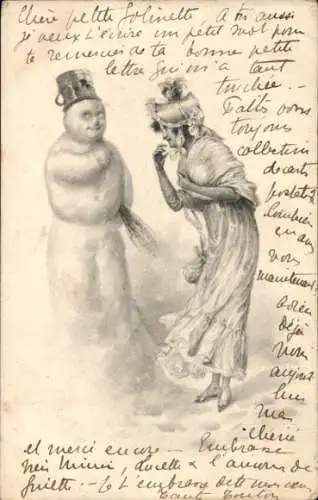 Chère petite Solinette, A toi aussi
je veux t'écrire un petit mot pour
te remercier de ta bonne petite
lettre qui m'a tant
touchée. —
Faites vous
toujours
collection
de cartes
postales?
Combien
en avez
vous
maintenant,
déjà
Vous
ma
chérie
et merci encore — Embrasse
bien Mimi, &
— Je t'embrasse de tt mon cœur
Tante